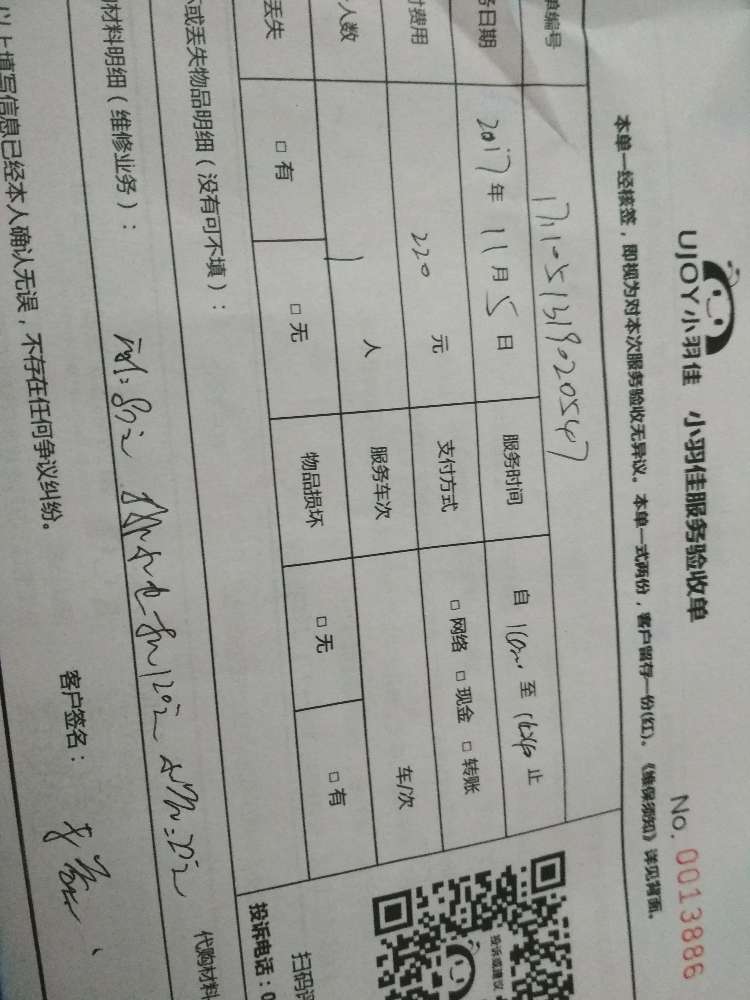 UJOY小羽佳 小羽佳服务验收单
No. 0013886
本单一经核签，即视为对本次服务验收无异议。本单一式两份，客户留存一份(红)。《维保须知》详见背面。
单编号
务日期 2017年 11月 5日 服务时间 自 至 止
付费用 220 元 支付方式 □网络 □现金 □转账
人数 1 人 服务车次 车/次
丢失 □有 □无 物品损坏 □无 □有
或丢失物品明细（没有可不填）：
材料明细（维修业务）：
代购材料
以上填写信息已经本人确认无误，不存在任何争议纠纷。
客户签名：
投诉或建议
扫码
投诉电话：0